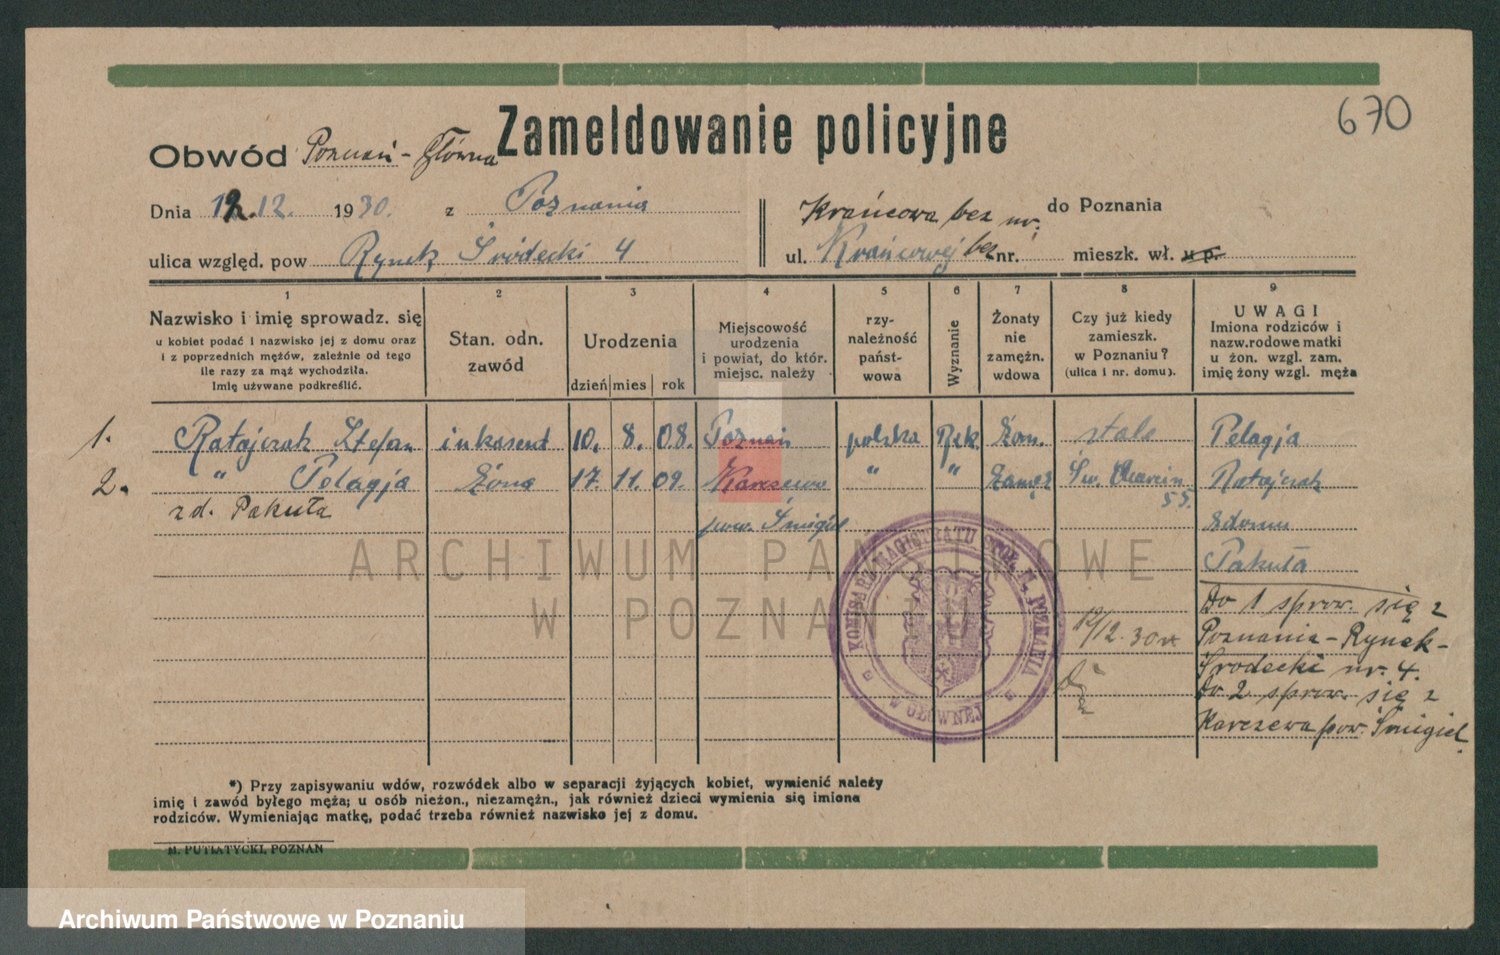 670
Zameldowanie policyjne
Obwód Poznań - Główna
Dnia 12.12. 1930. z Poznania
Krańcowa bez nr. do Poznania
ulica względ. pow Rynek Śródecki 4 ul. Krańcowej bez nr. mieszk. wł. u p.
1 2 3 4 5 6 7 8 9
Nazwisko i imię sprowadz. się
u kobiet podać i nazwisko jej z domu oraz
i z poprzednich mężów, zależnie od tego
ile razy za mąż wychodziła.
Imię używane podkreślić.
Stan. odn.
zawód
Urodzenia
dzień mies rok
Miejscowość
urodzenia
i powiat, do któr.
miejsc. należy
rzy-
należność
państ-
wowa
Wyznanie
Żonaty
nie
zamężn.
wdowa
Czy już kiedy
zamieszk.
w Poznaniu?
(ulica i nr. domu).
UWAGI
Imiona rodziców i
nazw.rodowe matki
u żon. wzgl. zam.
imię żony wzgl. męża
1. Ratajczak Stefan inkasent 10. 8. 08. Poznań polska Rzk. Żon. stale Pelagja
2. " Pelagja żona 17. 11. 09. Karczewo " " Zamęż Św. Marcin Ratajczak
55.
zd. Pakuła pow. Śmigiel zdomu
Pakuła
Do 1 sprow. się z
Poznania - Rynek-
Środecki nr. 4.
Do 2 sprow. się z
Karczewa pow. Śmigiel.
12/12. 30
KOMISARZ MAGISTRATU STOŁ. M. POZNANIA
W GŁÓWNEJ
ARCHIWUM PAŃSTWOWE
W POZNANIU
*) Przy zapisywaniu wdów, rozwódek albo w separacji żyjących kobiet, wymienić należy
imię i zawód byłego męża; u osób nieżon., niezamężn., jak również dzieci wymienia się imiona
rodziców. Wymieniając matkę, podać trzeba również nazwisko jej z domu.
M. PUTIATYCKI, POZNAŃ
Archiwum Państwowe w Poznaniu